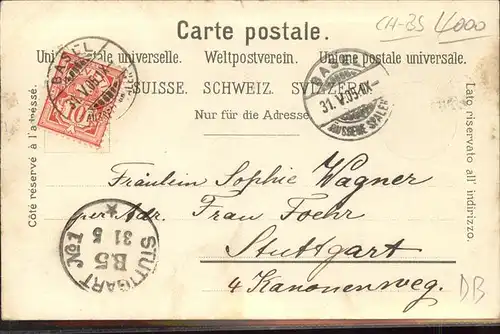 Carte postale.
CH-BS 4000
Union postale universelle. Weltpostverein. Unione postale universale.
SUISSE. SCHWEIZ. SVIZZERA.
Nur für die Adresse.
Côté réservé à l'adresse.
Lato riservato all' indirizzo.
BASEL
31.V.05
10
BASEL
31.V.05.IX-
ÄUSSERE SPALEN
Fräulein Sophie Wagner
per Adr. Frau Foehr
Stuttgart
4 Kanonenweg.
STUTTGART No. 1
B5
31
5
DB